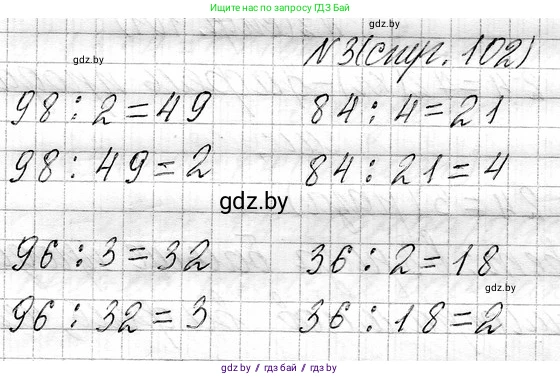 Ищите нас по запросу ГДЗ Бай
gdz.by
N 3(стр. 102)
gdz.by
98 : 2 = 49
84 : 4 = 21
98 : 49 = 2
84 : 21 = 4
gdz.by
96 : 3 = 32
36 : 2 = 18
gdz.by
96 : 32 = 3
36 : 18 = 2
gdz.by // гдз бай // gdz.by